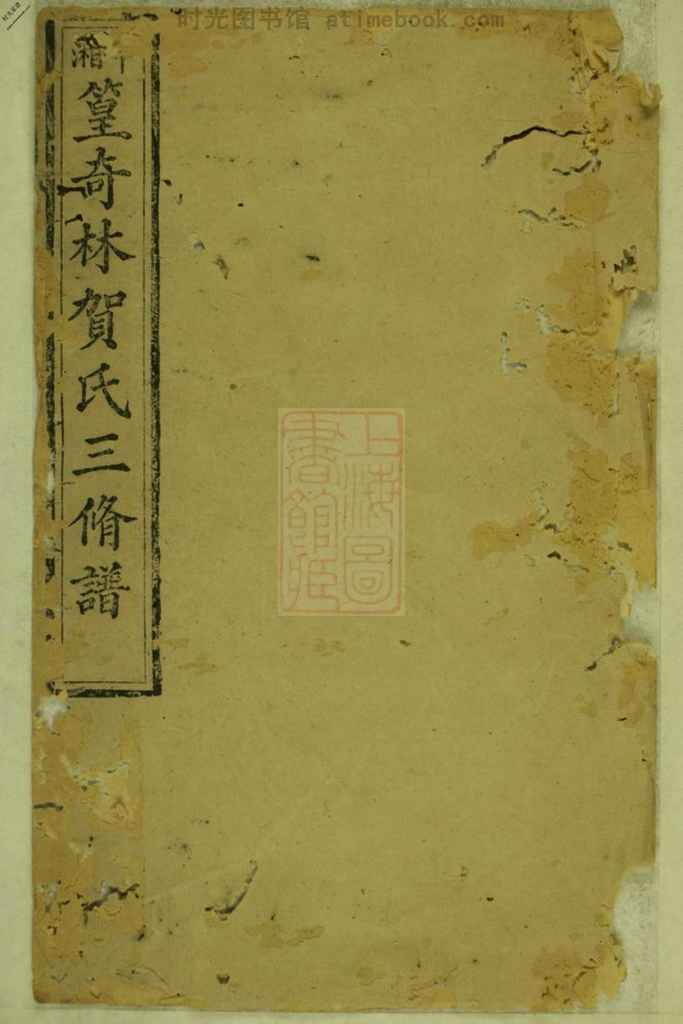 时光图书馆 atimebook.com
湘
篁奇林賀氏三脩譜
上海圖
書館藏